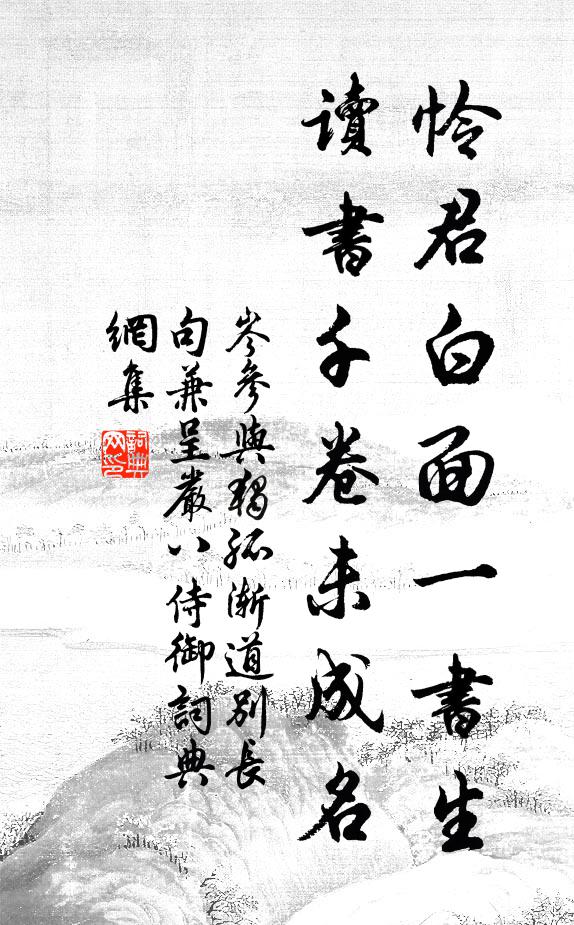 怜君白面一書生
讀書千卷未成名
岑參與獨孤漸道別長
句兼呈嚴八侍御詞典
網集
詞典
网印